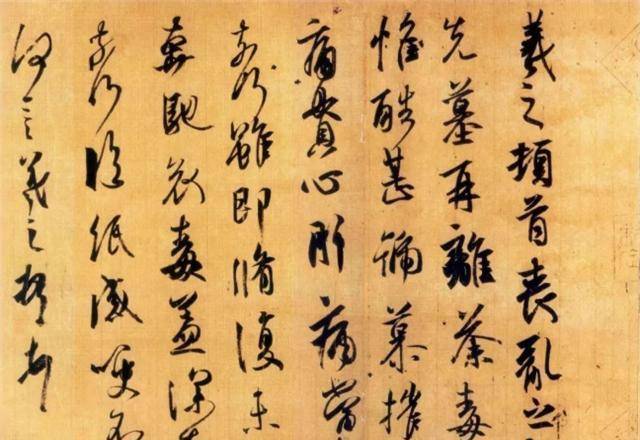 羲之頓首喪亂之
先墓再離荼毒
惟酷甚號慕摧
痛貫心肝痛當
奈何雖即脩復未
奔馳哀毒益深
奈何臨紙感哽不
何言羲之頓首